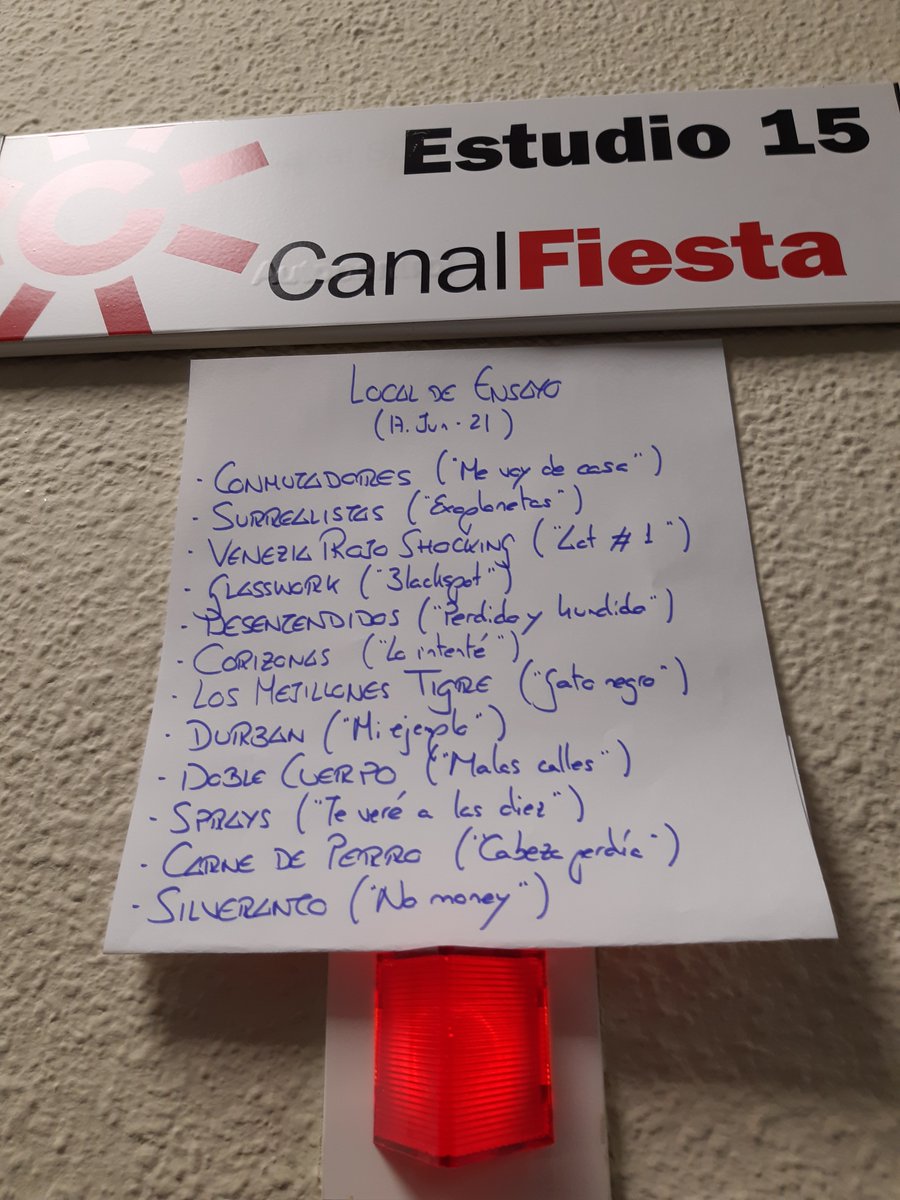 Estudio 15
CanalFiesta
LOCAL DE ENSAYO
(17. Jun - 21)
· CONMUTADORES ("Me voy de casa")
· SURREALISTAS ("Exoplanetas")
· VENEZIA ROJO SHOCKING ("Act # 1")
· GLASSWORK ("Blackspot")
· DESENTENDIDOS ("Perdido y hundido")
· CORIZONAS ("Lo intenté")
· LOS MEJILLONES TIGRE ("Gato negro")
· DURBAN ("Mi ejemplo")
· DOBLE CUERPO ("Malas calles")
· SPRAYS ("Te veré a las diez")
· CARNE DE PERRO ("Cabeza perdía")
· SILVERANTO ("No money")